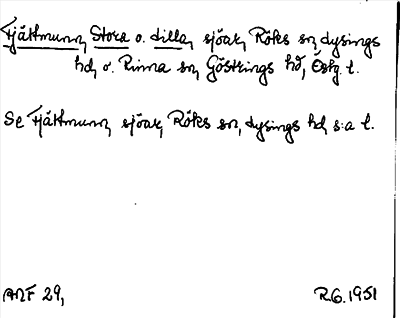 Fjättmunn, Stora o. Lilla, sjöar, Röks sn, Lysings
hd, o. Rinna sn, Göstrings hd, Östg. l.
Se Fjättmunn, sjöar, Röks sn, Lysings hd s:a l.
ANF 29, R.G. 1951